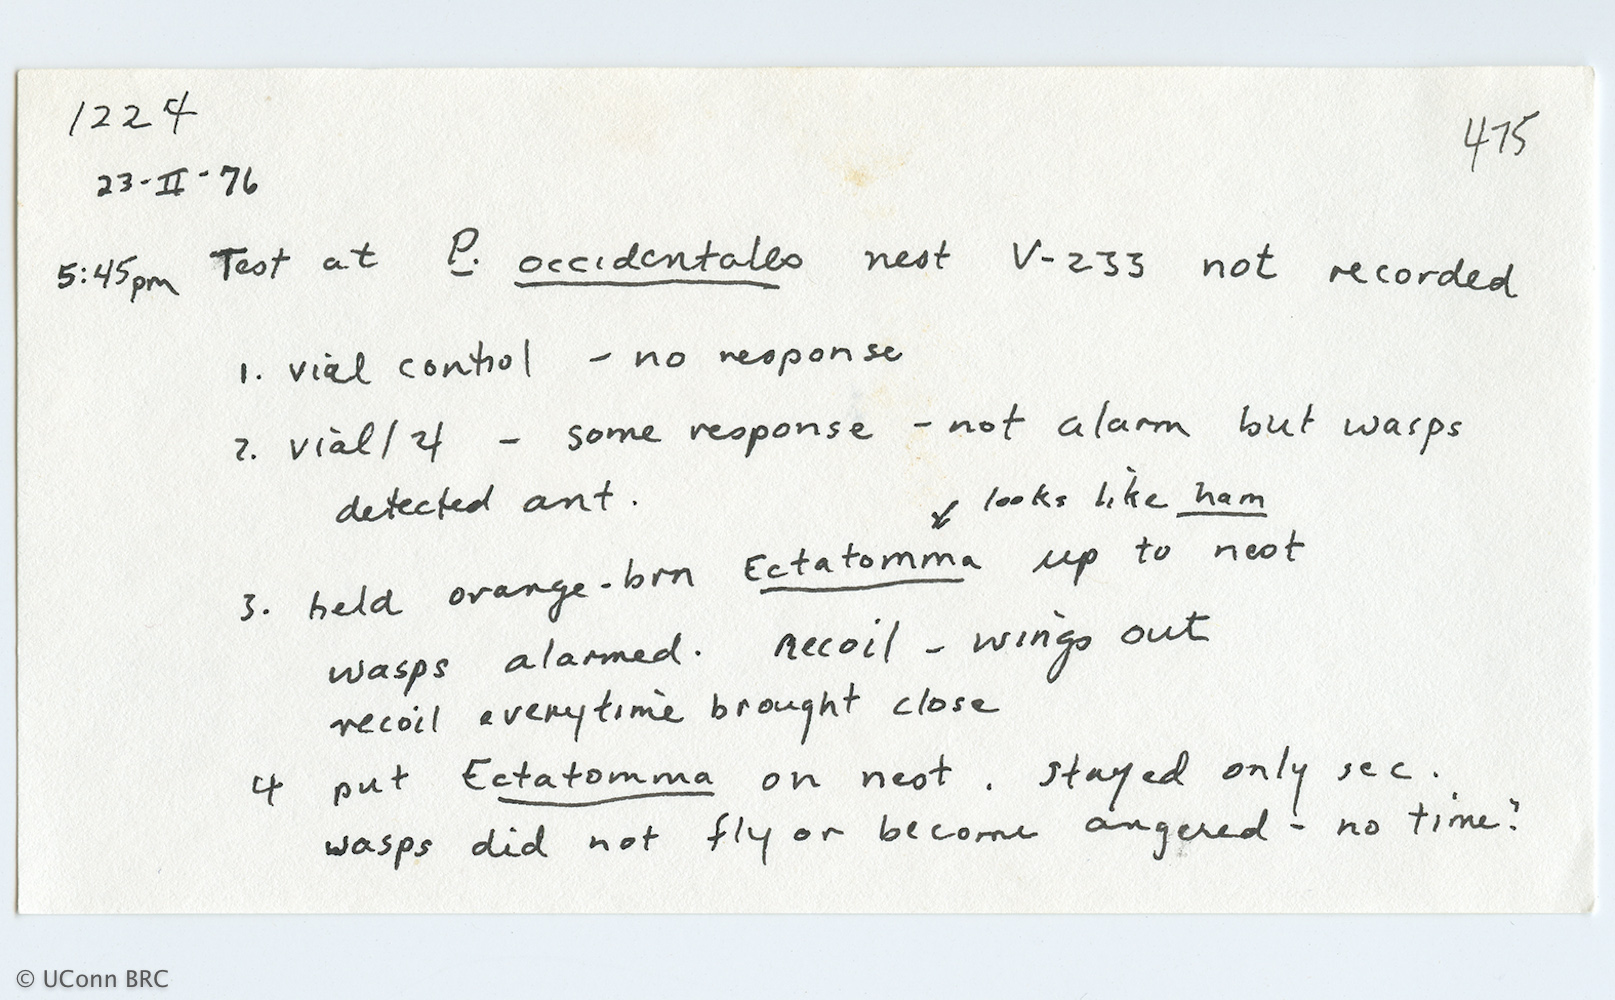 1224
475
23-II-76
5:45pm Test at P. occidentales nest V-233 not recorded
1. vial control - no response
2. vial/4 - some response - not alarm but wasps
detected ant.
↙ looks like ham
3. held orange-brn Ectatomma up to nest
wasps alarmed. Recoil - wings out
recoil everytime brought close
4 put Ectatomma on nest. stayed only sec.
wasps did not fly or become angered - no time?
© UConn BRC